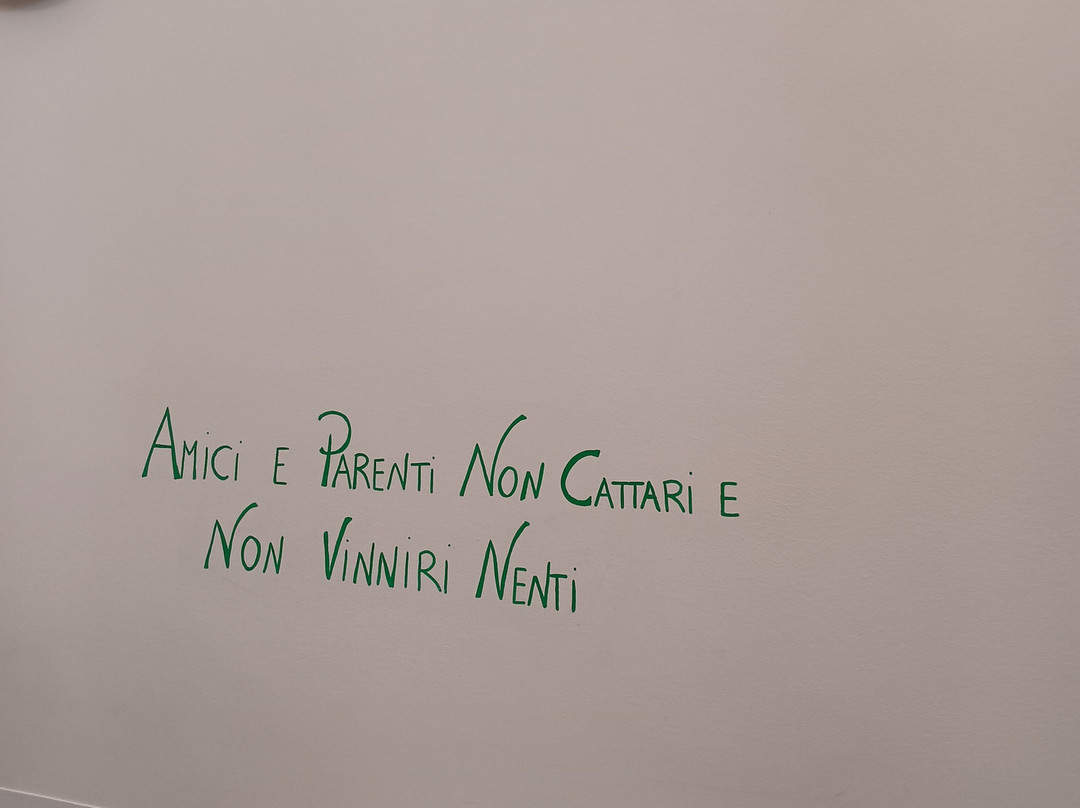 Amici e Parenti Non Cattari e
Non Vinniri Nenti